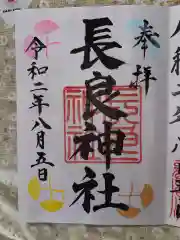 奉拝
長良神社
令和二年八月五日